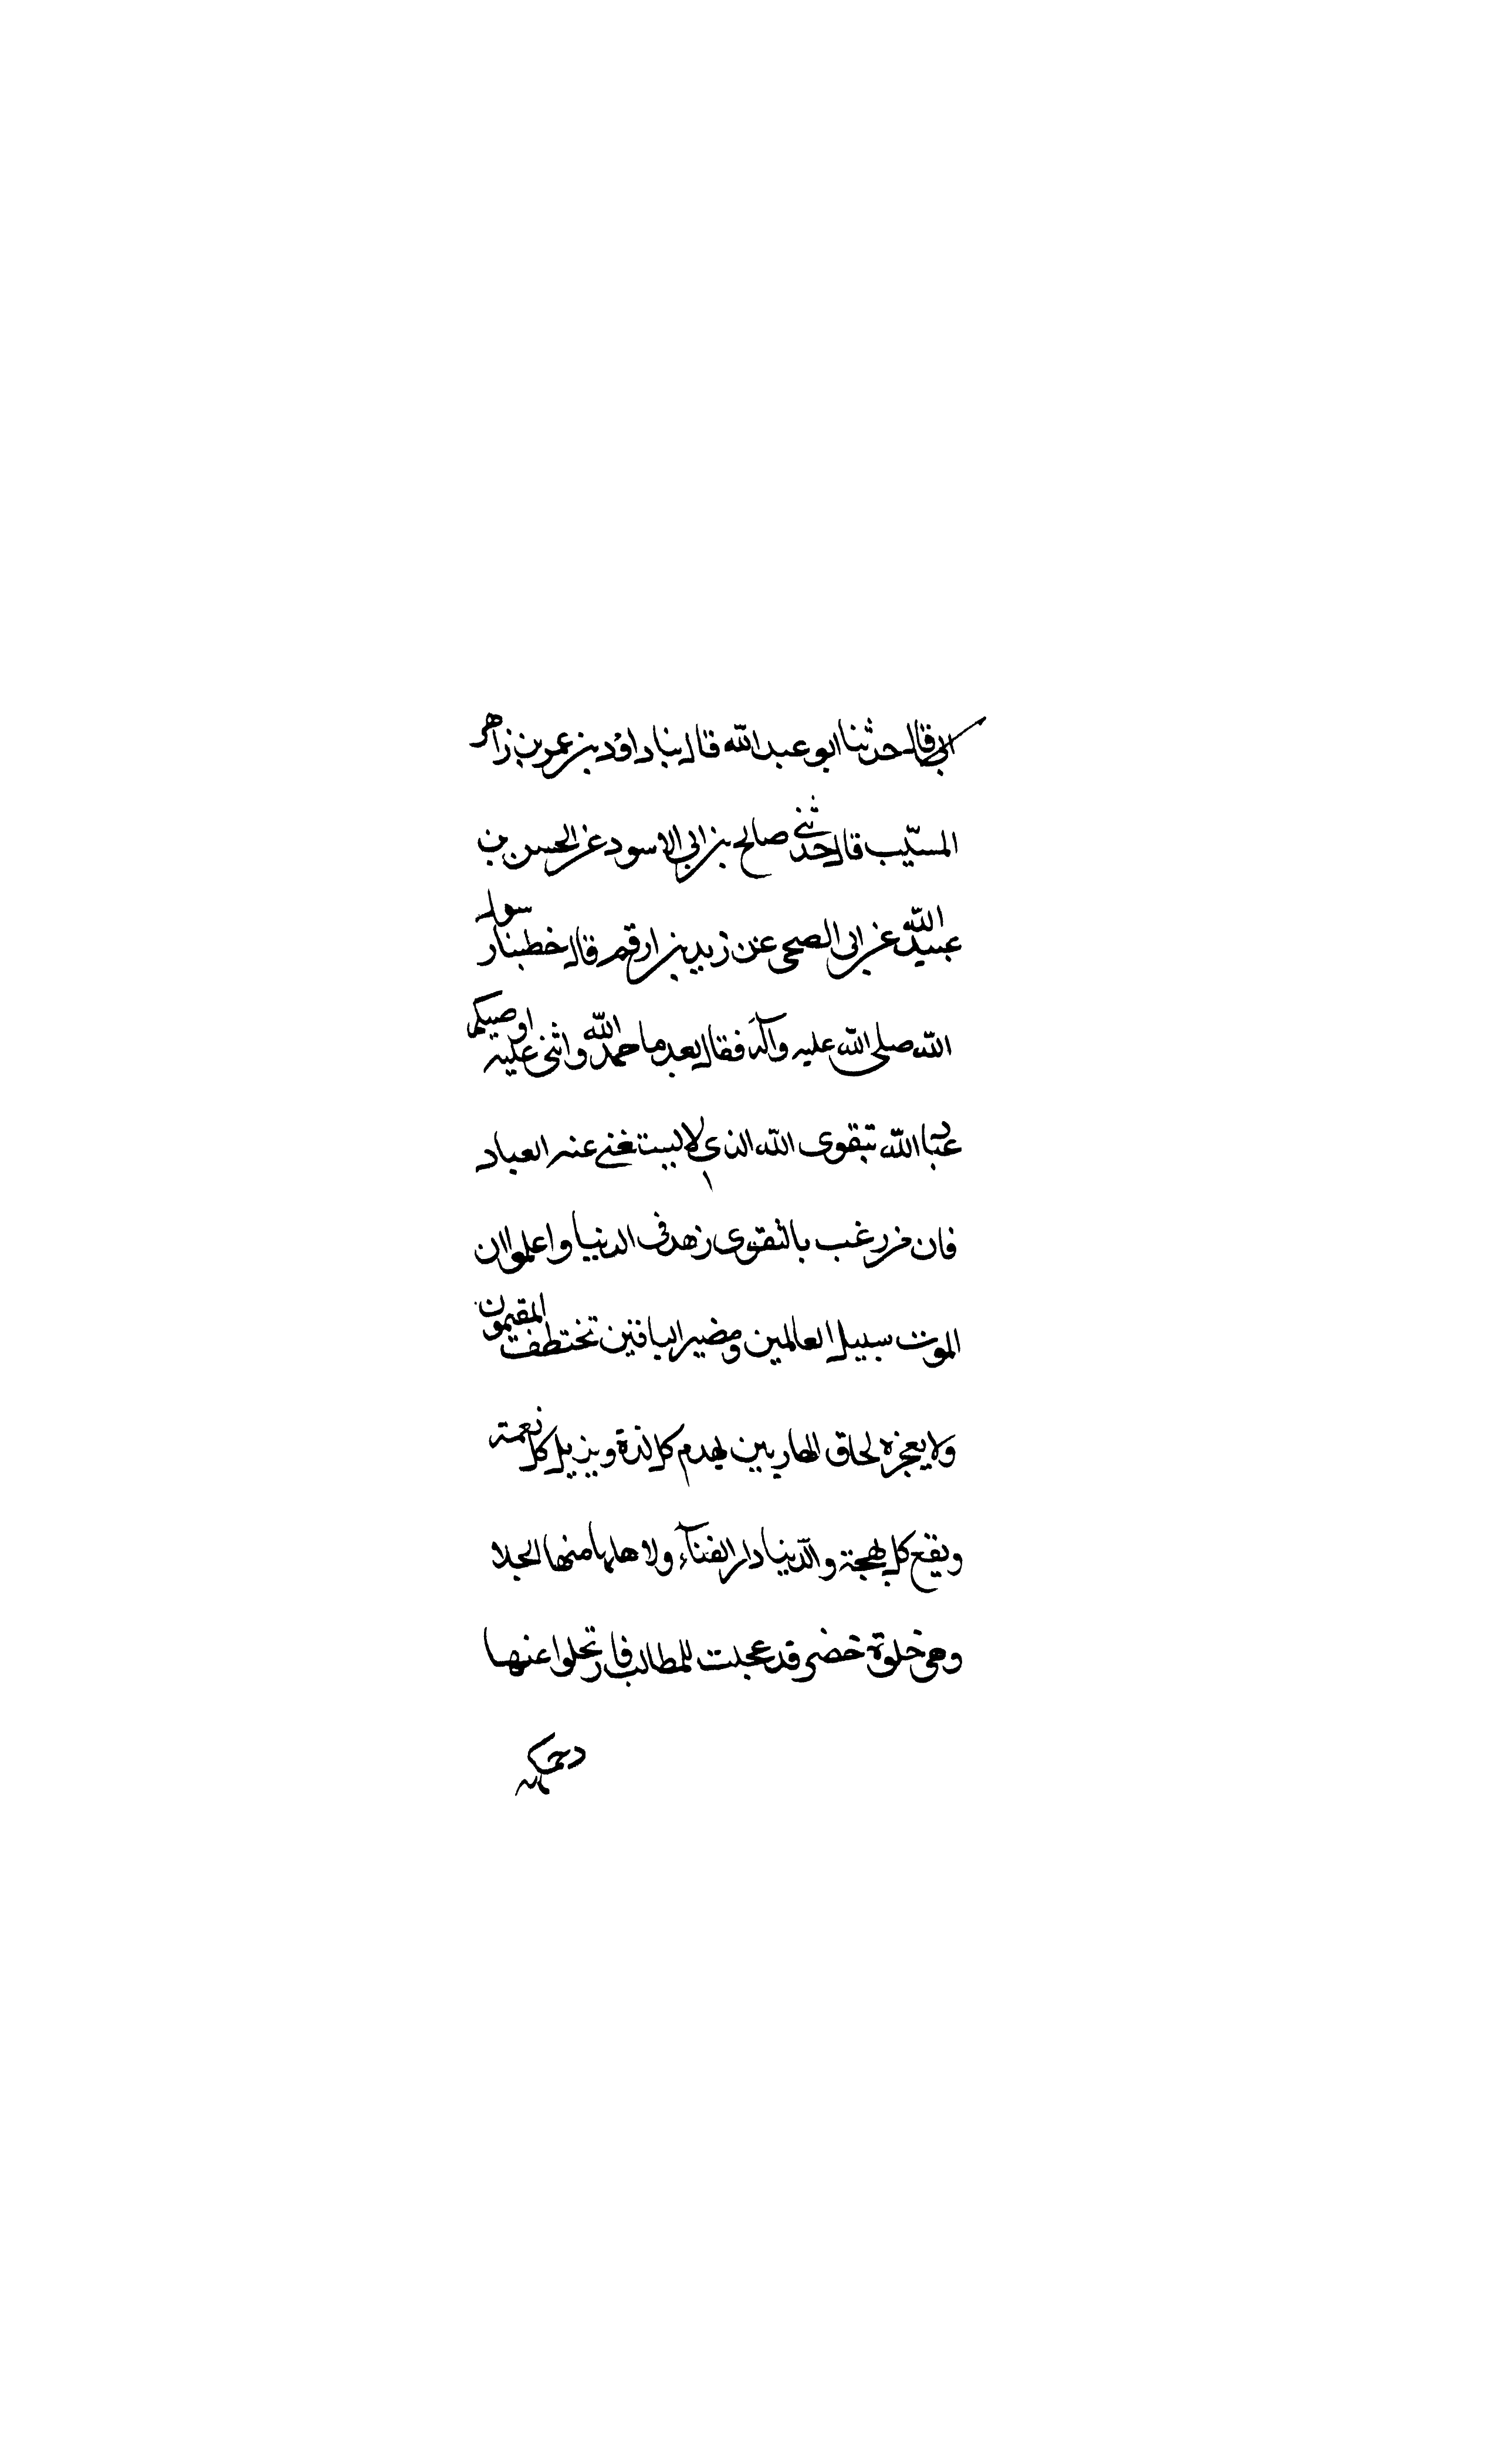 قال حدثنا ابو عبد الله قال بنا داود بن عمرو بن زاهر
المسيّب قال حدثني صالح بن ابي الاسود عن الحسن بن
عبيد الله عن ابي الصحى عن زيد بن ارقم قال خطبنا رسول
الله صلى الله عليه وآله فقال بعد ما حمد الله واثنى عليه اوصيكم
عباد الله بتقوى الله الذي لا يستغني عنه العباد
فان من رغب بالتقوى زهد في الدنيا واعلموا ان
الموت سبيل العالمين ومضير الباقين تختطف المقيمون
ولا يعجزه لحاق الهاربين يهدم كل لذة ويزيل كل نعمة
ويقع كل بهجة والدّنيا دار الفنآء ولاهلها منها الجلا
وهي حلوة خضرى قد عجلت للطالب فارتحلوا عنها